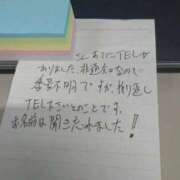 あてにTELが
ありました。非通知なので
番号不明ですが、折り返し
TEL下さいとのことです。
お名前は聞きとれました!